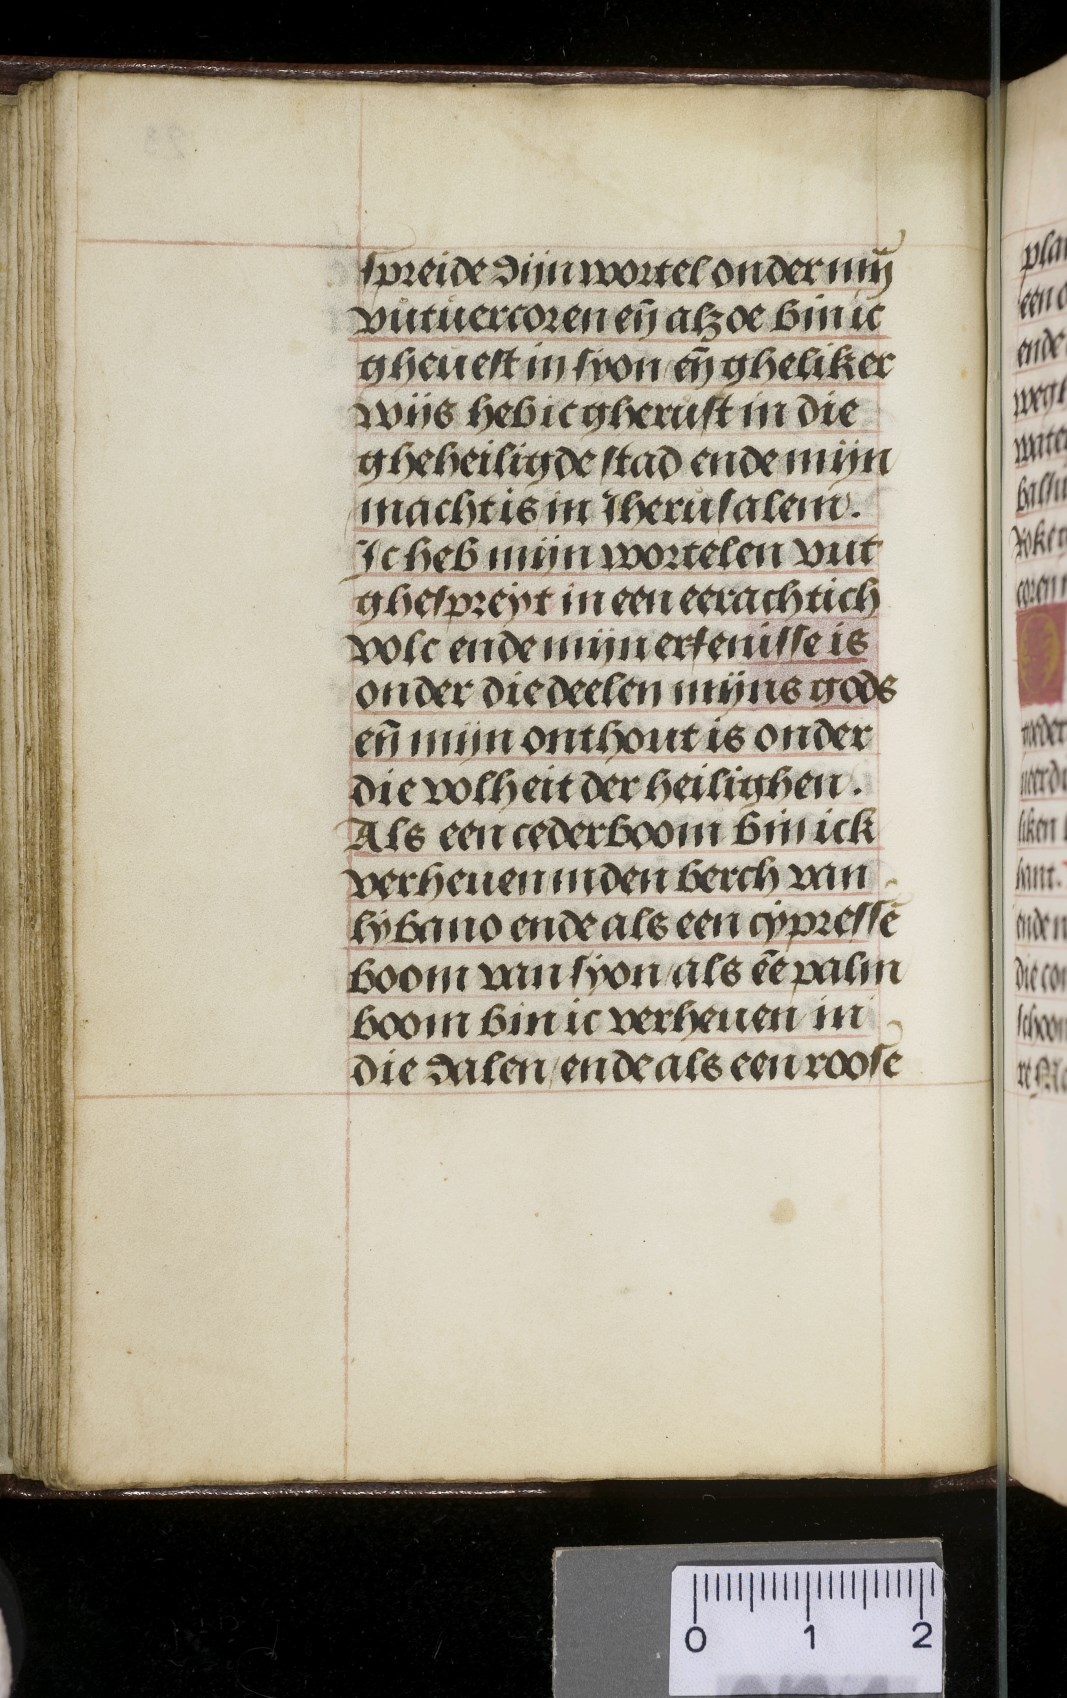 spreide dijn wortel onder mijn̄
vutuercoren en̄ alzoe bin ic
gheuest in syon / en̄ gheliker
wijs heb ic gherust in die
gheheiligde stad ende mijn
macht is in Iherusalem.
Ic heb mijn wortelen vut
ghespreyt in een eerachtich
volc ende mijn erfenisse is
onder die deelen mijns gods
en̄ mijn onthout is onder
die volheit der heilighen.
Als een cederboom bin ick
verheuen inden berch van
lybano ende als een cypressē
boom van syon / als eē palm
boom bin ic verheuen in
die dalen / ende als een roose
pla
een
ende
wegh
water
balsa
coren
D
liken
ende
die
schoon
0 1 2